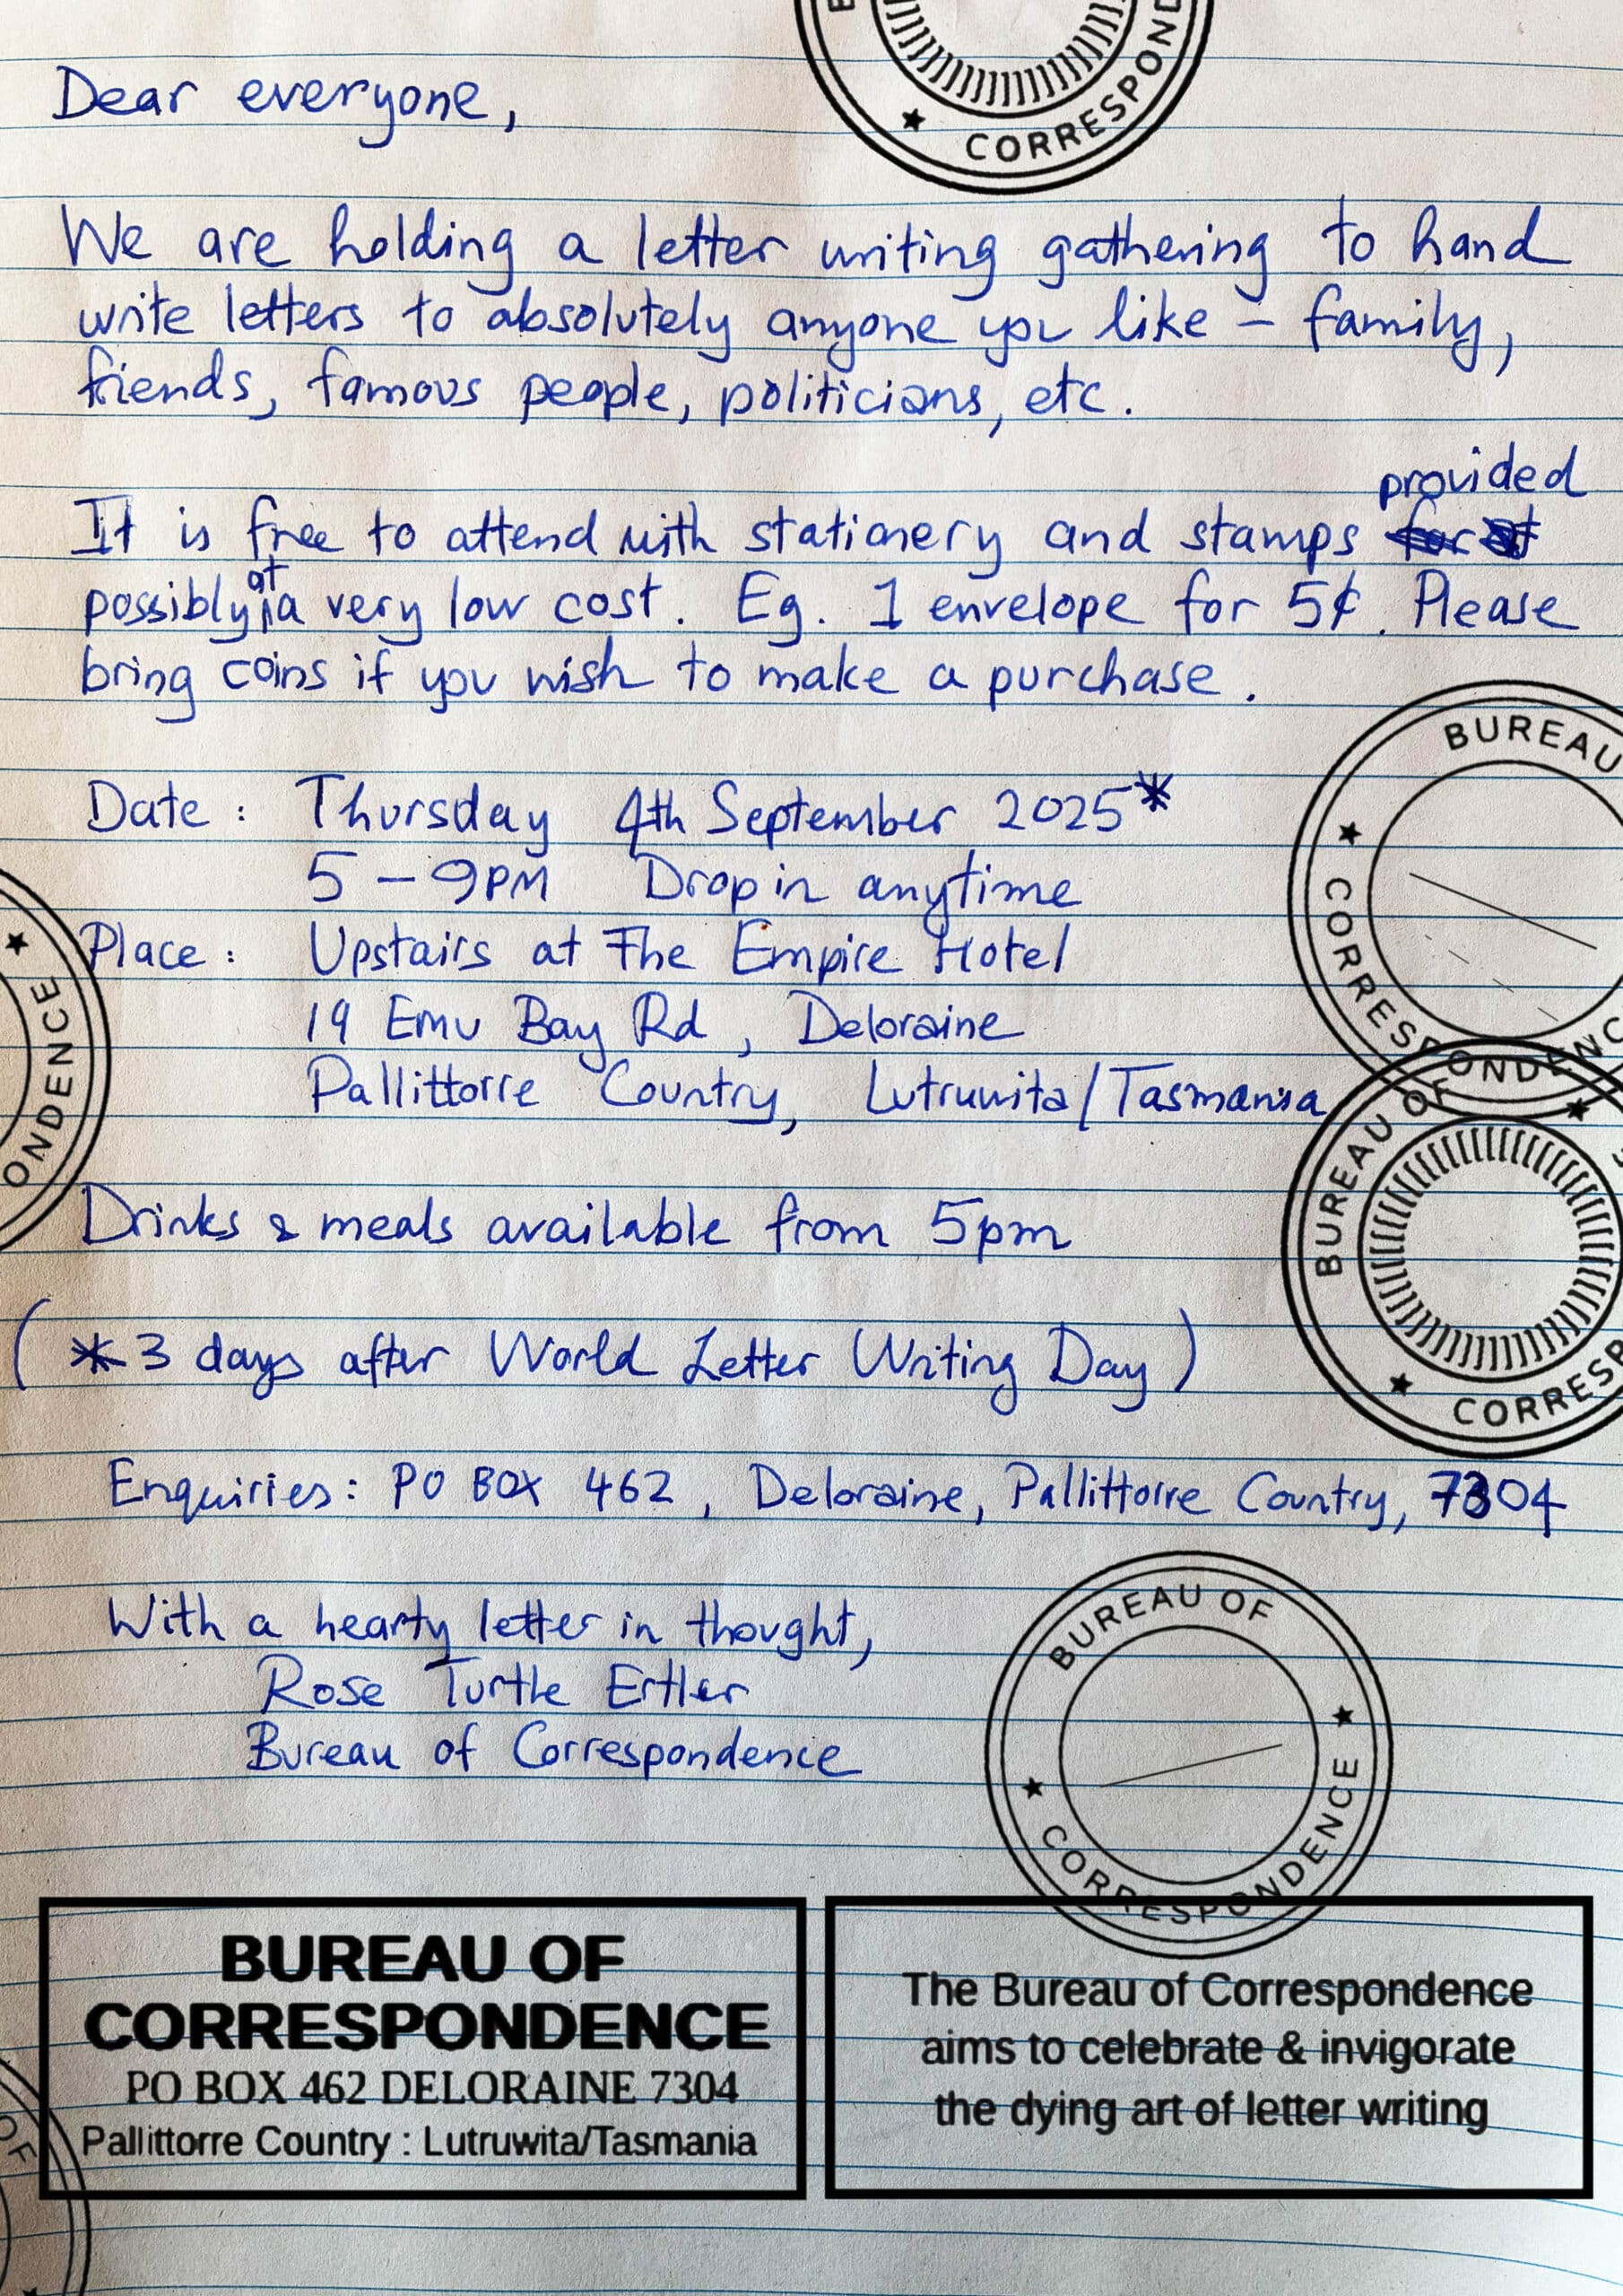 BUREAU OF CORRESPOND
Dear everyone,
We are holding a letter writing gathering to hand
write letters to absolutely anyone you like – family,
friends, famous people, politicians, etc.
provided
It is free to attend with stationery and stamps for at
possibly at a very low cost. Eg. 1 envelope for 5¢. Please
bring coins if you wish to make a purchase.
BUREAU
★ CORRESPONDENC
Date: Thursday 4th September 2025*
5 – 9PM Drop in anytime
★
ONDENCE
Place: Upstairs at The Empire Hotel
19 Emu Bay Rd, Deloraine
Pallittorre Country, Lutruwita/Tasmania
BUREAU OF
★ CORRESP
Drinks & meals available from 5pm
(*3 days after World Letter Writing Day)
Enquiries: PO BOX 462, Deloraine, Pallittorre Country, 7304
With a hearty letter in thought,
Rose Turtle Ertler
Bureau of Correspondence
BUREAU OF
★ CORRESPONDENCE ★
BUREAU OF
CORRESPONDENCE
PO BOX 462 DELORAINE 7304
Pallittorre Country : Lutruwita/Tasmania
The Bureau of Correspondence
aims to celebrate & invigorate
the dying art of letter writing
OF